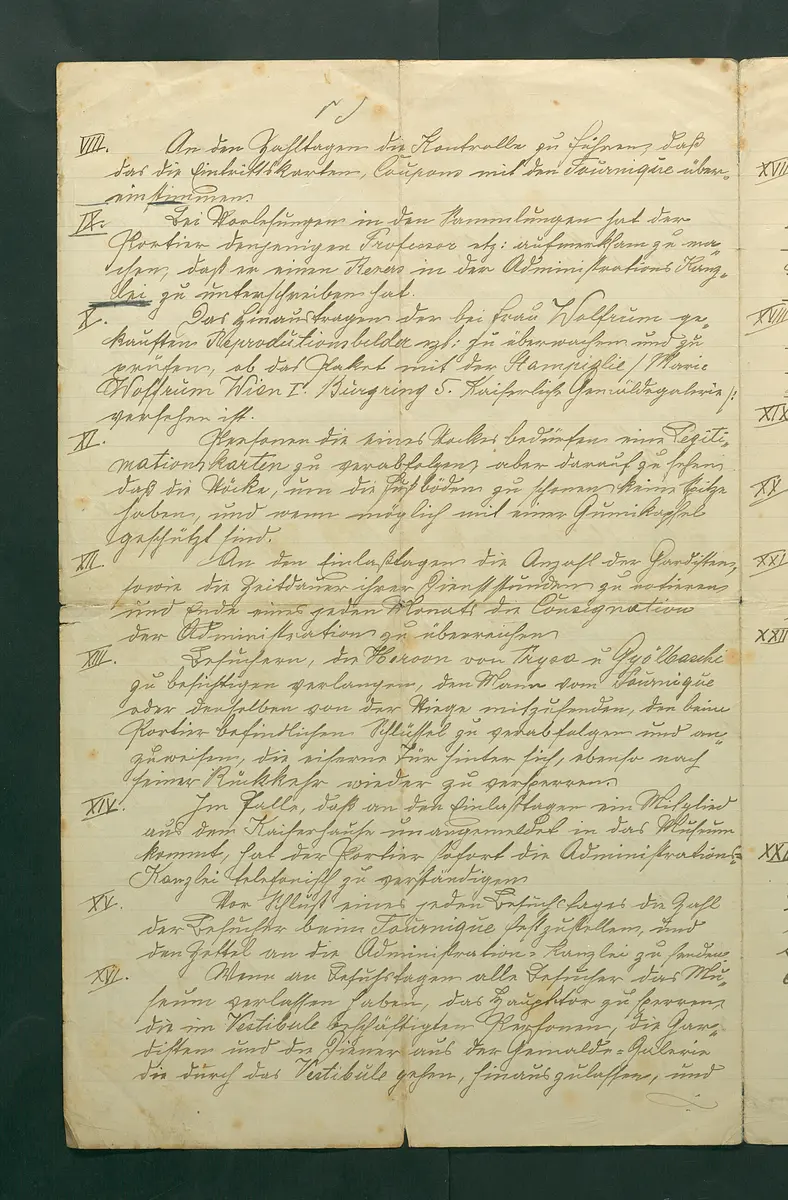 VIII. An den Zahltagen die Kontrolle zu führen, daß
das die Eintrittskarten, Coupons mit den Tournique über-
einstimmen.
IX. Bei Vorlesungen in den Sammlungen hat der
Portier denjenigen Professor etz: aufmerksam zu ma-
chen, daß er einen Revers in der Administrations Kanz-
lei zu unterschreiben hat.
X. Das Hinaustragen der bei Frau Wolfrum ge-
kauften Reproductionsbilder etz: zu überwachen und zu
prüfen, ob das Paket mit der Stampiglie / Marie
Wolfrum Wien I. Burgring 5. Kaiserliche Gemäldegalerie /:
versehen ist.
XI. Personen die eines Stockes bedürfen eine Legiti-
mationskarten zu verabfolgen, aber darauf zu sehen
daß die Stöcke, um die Fußböden zu schonen keine Spitze
haben, und wenn möglich mit einer Gumikapsel
geschützt sind.
XII. An den Einlaßtagen die Anzahl der Gardisten,
sowie die Zeitdauer ihrer Dienststunden zu notieren
und Ende eines jeden Monats die Consignation
der Administration zu überreichen
XIII. Besuchern, die Heroon von Trysa u Gyölbaschi
zu besichtigen verlangen, den Mann vom Tournique
oder denselben von der Stiege mitzusenden, den beim
Portier befindlichen Schlüssel zu verabfolgen und an-
zuweisen, die eiserne Tür hinter sich, ebenso nach
seiner Rückkehr wieder zu versperren.
XIV. Im Falle, daß an den Einlaßtagen ein Mitglied
aus dem Kaiserhause unangemeldet in das Museum
kommt, hat der Portier sofort die Administrations-
Kanzlei telefonisch zu verständigen
XV. Vor Schluß eines jeden Besuchstages die Zahl
der Besucher beim Tournique festzustellen, und
den Zettel an die Administration-Kanzlei zu senden.
XVI. Wenn an Besuchstagen alle Besucher das Mu-
seum verlassen haben, das Haupttor zu sperren,
die im Vestibule beschäftigten Personen, die Gar-
disten und die Diener aus der Gemälde-Galerie
die durch das Vestibule gehen, hinauszulassen, und
XVIII
XIX
XX
XXI
XXII